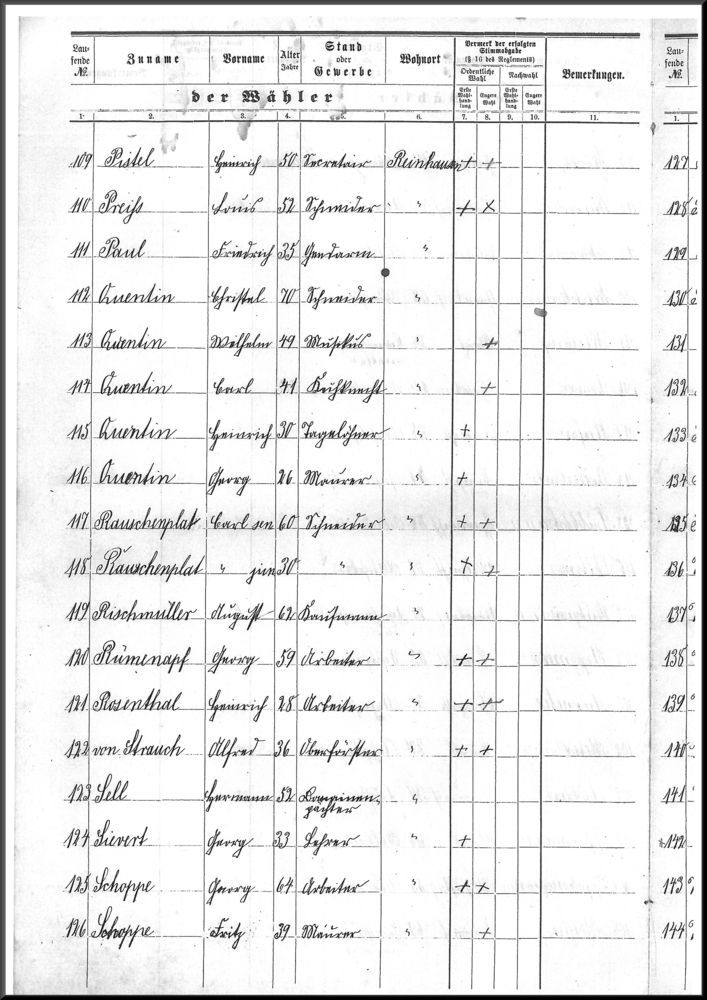 Lau-
fende
№.
Zuname
Vorname
Alter
Jahre
Stand
oder
Gewerbe
Wohnort
Vermerk der erfolgten
Stimmabgabe
(§ 16 des Reglements)
Ordentliche
Wahl
Nachwahl
Erste
Wahl-
hand-
lung
Engere
Wahl
Erste
Wahl-
hand-
lung
Engere
Wahl
Bemerkungen.
Lau-
fende
№.
der Wähler
1. 2. 3. 4. 5. 6. 7. 8. 9. 10. 11. 1.
109 Pistel Heinrich 50 Secretair Reinhausen + + 127
110 Preiß Louis 52 Schneider " + × 128
111 Paul Friedrich 35 Gendarm " 129
112 Quentin Christel 70 Schneider " 130
113 Quentin Wilhelm 49 Musikus " + 131
114 Quentin Carl 41 Kuhknecht " + 132
115 Quentin Heinrich 30 Tagelöhner " + 133
116 Quentin Georg 26 Maurer " + 134
117 Rauschenplat Carl sen 60 Schneider " + + 135
118 Rauschenplat " jun 30 " " + + 136
119 Rischmüller August 62 Kaufmann " 137
120 Rümenapf Georg 59 Arbeiter " + + 138
121 Rosenthal Heinrich 28 Arbeiter " + + 139
122 von Strauch Alfred 36 Oberförster " + + 140
123 Sell Hermann 52 Domainen- " 141
pächter
124 Sievert Georg 33 Lehrer " + 142
125 Schoppe Georg 64 Arbeiter " + + 143
126 Schoppe Fritz 39 Maurer " + 144